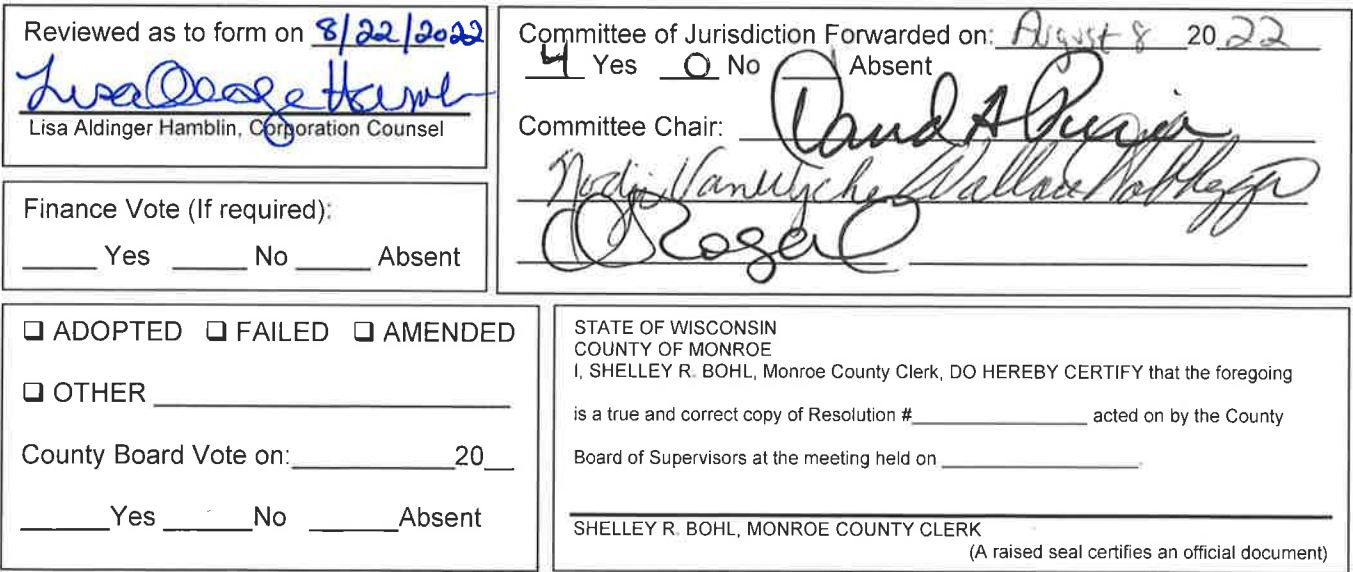 Reviewed as to form on 8/22/2022
Lisa Aldinger Hamblin, Corporation Counsel
Committee of Jurisdiction Forwarded on: August 8 2022
4 Yes 0 No ___ Absent
Committee Chair: David A
Nodji VanWychen Wallace Habhegger
Finance Vote (If required):
_____ Yes _____ No _____ Absent
❑ ADOPTED ❑ FAILED ❑ AMENDED
❑ OTHER ____________________
County Board Vote on:___________20__
______Yes ______No ______Absent
STATE OF WISCONSIN
COUNTY OF MONROE
I, SHELLEY R. BOHL, Monroe County Clerk, DO HEREBY CERTIFY that the foregoing
is a true and correct copy of Resolution #______________ acted on by the County
Board of Supervisors at the meeting held on ________________.
SHELLEY R. BOHL, MONROE COUNTY CLERK
(A raised seal certifies an official document)